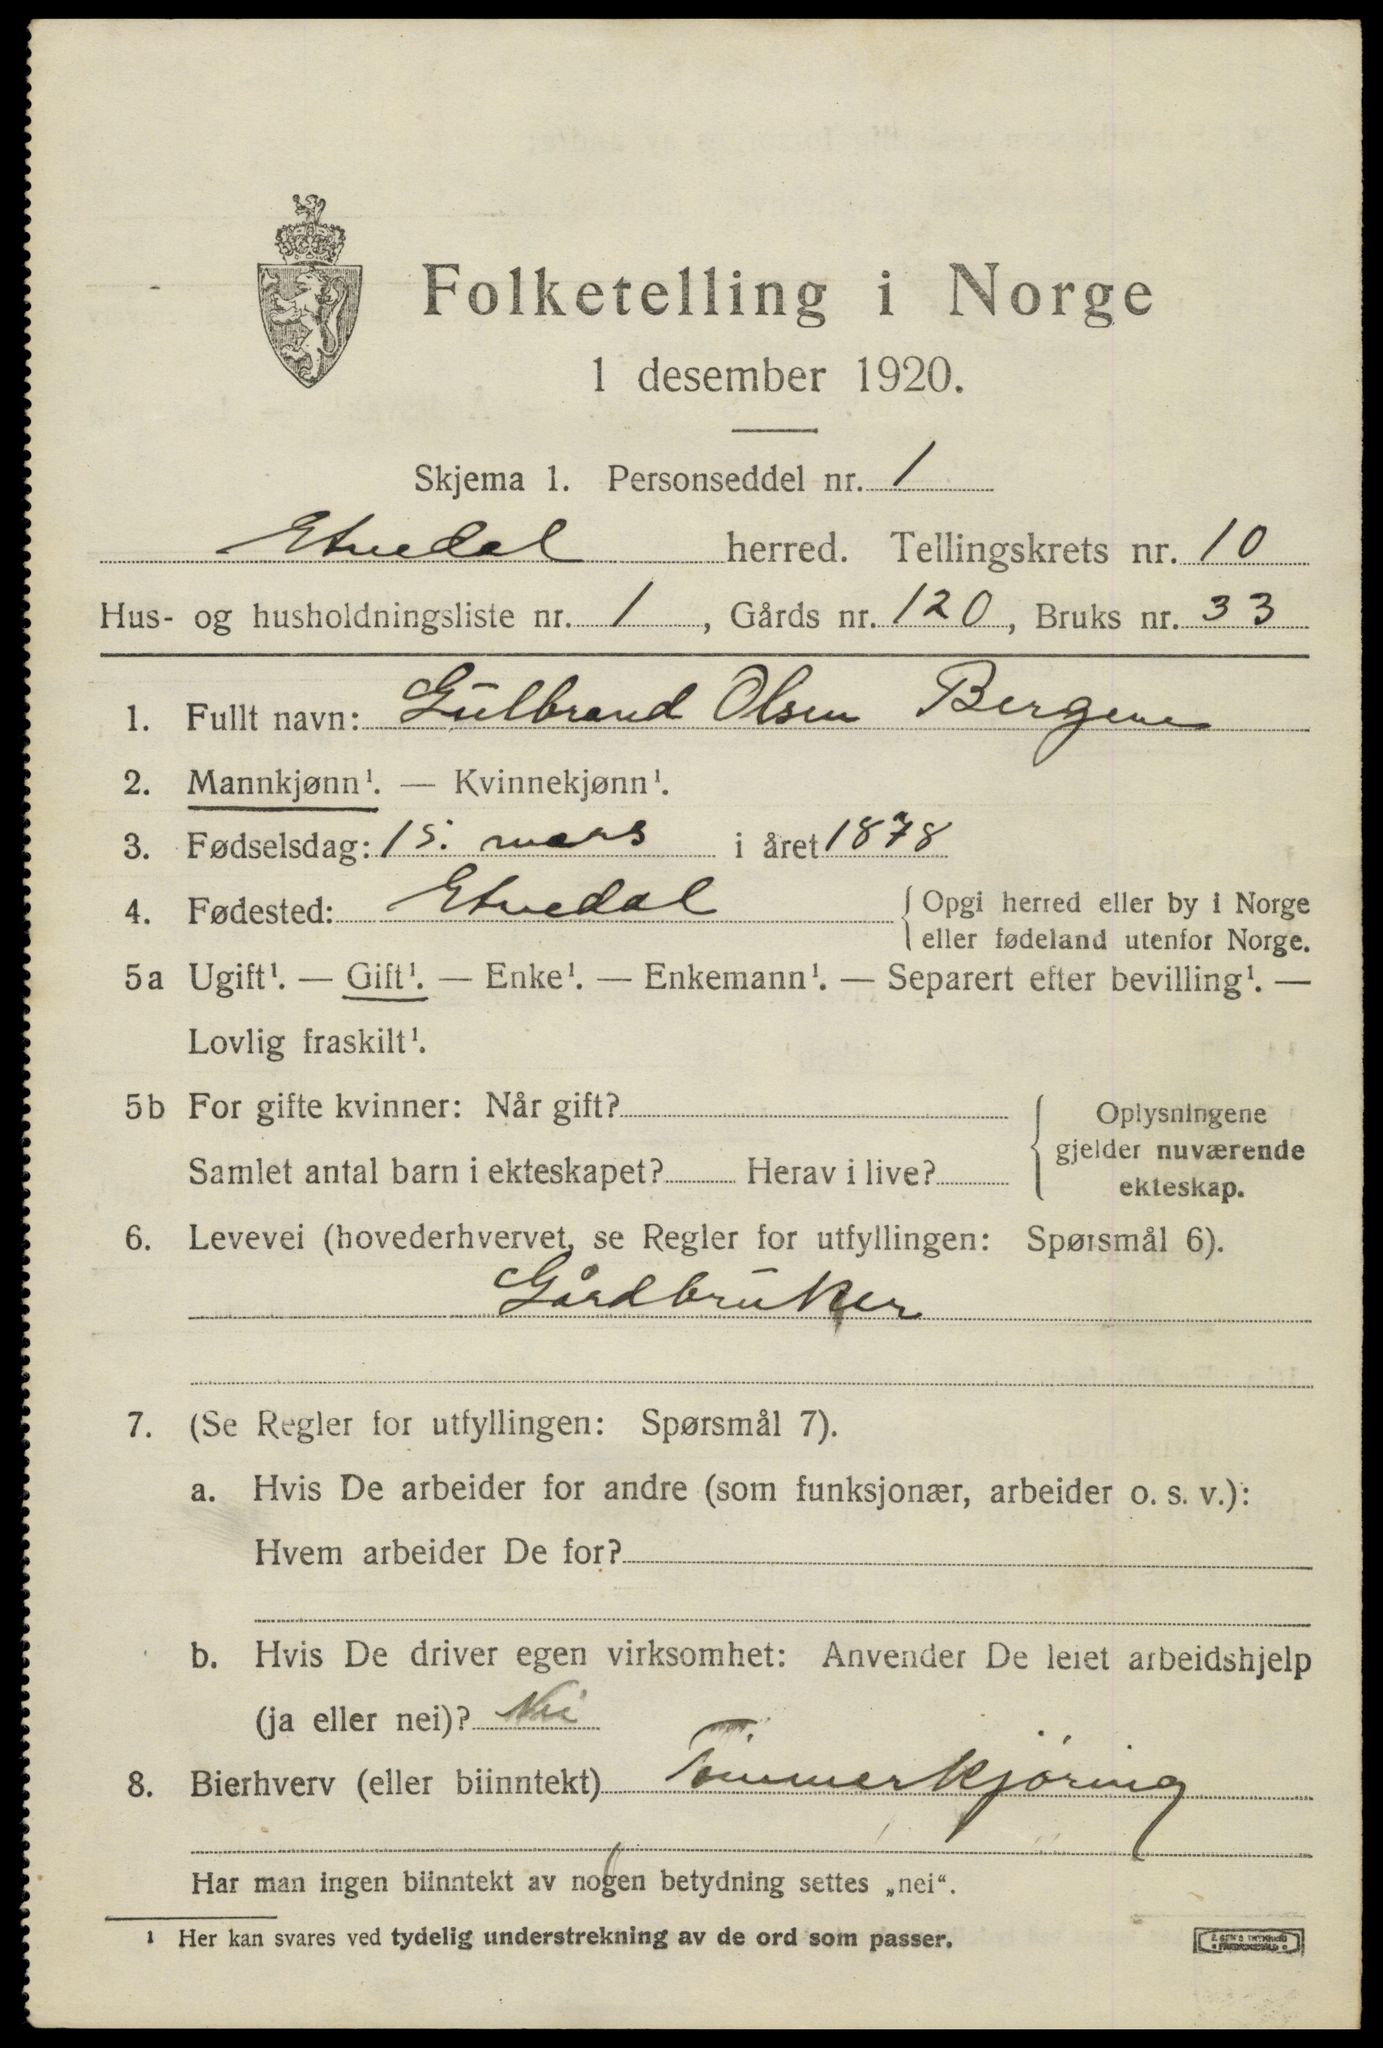 Folketelling i Norge
1 desember 1920.
Skjema 1. Personseddel nr. 1
Etnedal herred. Tellingskrets nr. 10
Hus- og husholdningsliste nr. 1, Gårds nr. 120, Bruks nr. 33
1. Fullt navn: Gulbrand Olsen Bergene
2. Mannkjønn¹. — Kvinnekjønn¹.
3. Fødselsdag: 15. mars i året 1878
4. Fødested: Etnedal { Opgi herred eller by i Norge
eller fødeland utenfor Norge.
5a Ugift¹. — Gift¹. — Enke¹. — Enkemann¹. — Separert efter bevilling¹. —
Lovlig fraskilt¹.
5b For gifte kvinner: Når gift?
Samlet antal barn i ekteskapet? Herav i live?
Oplysningene
gjelder nuværende
ekteskap.
6. Levevei (hovederhvervet, se Regler for utfyllingen: Spørsmål 6).
Gårdbruker
7. (Se Regler for utfyllingen: Spørsmål 7).
a. Hvis De arbeider for andre (som funksjonær, arbeider o. s. v.):
Hvem arbeider De for?
b. Hvis De driver egen virksomhet: Anvender De leiet arbeidshjelp
(ja eller nei)? Nei
8. Bierhverv (eller biinntekt) Tømmerkjøring
Har man ingen biinntekt av nogen betydning settes „nei“.
¹ Her kan svares ved tydelig understrekning av de ord som passer.